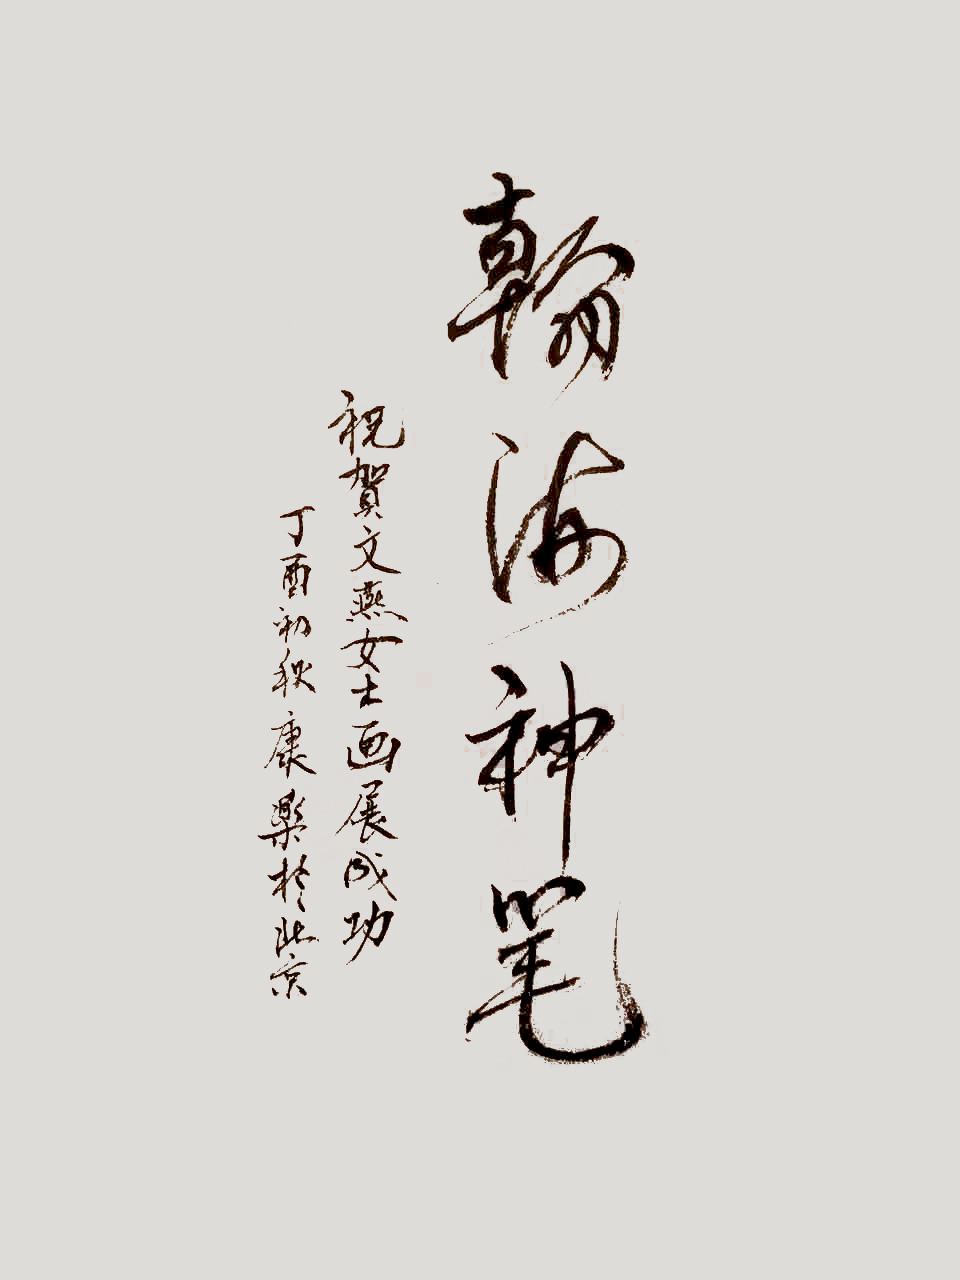 翰海神笔
祝賀文燕女士画展成功
丁酉初秋康樂於北京